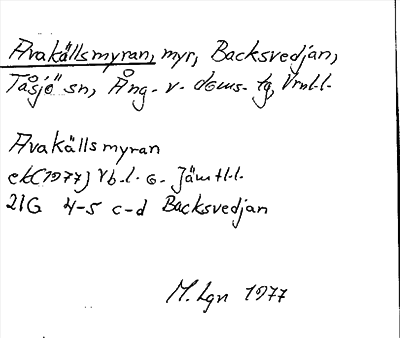 Avakällsmyran, myr, Backsvedjan,
Tåsjö sn, Ång. v. doms. tg, Vrnl.l.
Avakällsmyran
ek(1977) Vb.l. o. Jämtl.l.
21G 4-5 c-d Backsvedjan
M. Lgn 1977